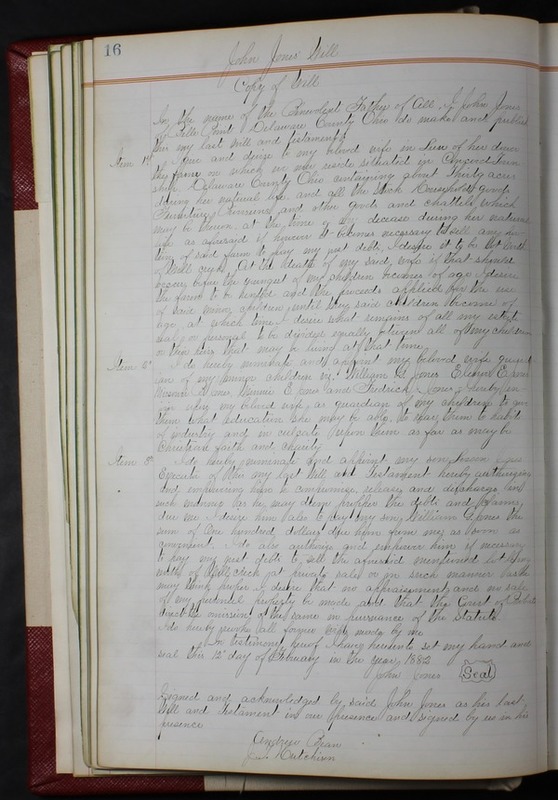 16
John Jones Will
Copy of Will
In the name of the Benevolent Father of All, I John Jones
of Belle Point Delaware County Ohio do make and publish
this my last will and testament
Item 1st I give and devise to my beloved wife in Lieu of her dower
the farm on which we now reside situated in Concord Town
ship Delaware County Ohio containing about thirty acres
during her natural life and all the stock Household goods
furniture and other goods and chattels which
may be thereon at the time of my decease during her natural
life as aforesaid if however it becomes necessary to sell any por
tion of said farm to pay my just debts, I desire it to be the lot north
of Mill creek. At the death of my said wife if that should
occur before the youngest of my children becomes of age I desire
the farm to be rented and the proceeds applied for the use
of said minor children until they said children become of
age, at which time I desire what remains of all my estate
real or personal to be divided equally between all of my children
or their heirs that may be living at that time
Item 2d I do hereby nominate and appoint my beloved wife guard
ian of my minor children viz. William G. Jones
Jones, Minnie E Jones and Fredrick Jones, hereby
my beloved wife, as guardian of my children to give
them what education she may be able, to rear them to habits
of industry and inculcate upon them as far as may be
Christian faith and charity
Item 3d I do hereby nominate and appoint my son
Executor of this my last will and testament hereby authorizing
and empowering him to compromise, release and discharge in
such manner as he may deem proper the debts and claims
due me I desire him also to pay my son William G Jones the
sum of One hundred dollars due him from me as soon as
convenient. I do also authorize and empower him if necessary
to pay my just debts to sell the aforesaid mentioned lot lying
north of Mill creek at private sale or in such manner as he
may think proper, I desire that no appraisement and no sale
of my personal property be made and that the Court of Probate
direct the omission of the same in pursuance of the Statute.
I do hereby revoke all former wills made by me
In testimony hereof I have hereunto set my hand and
seal this 12 day of February in the year 1882
John Jones Seal
Signed and acknowledged by said John Jones as his last
Will and Testament in our presence and signed by us in his
presence
Bean
Hutchison